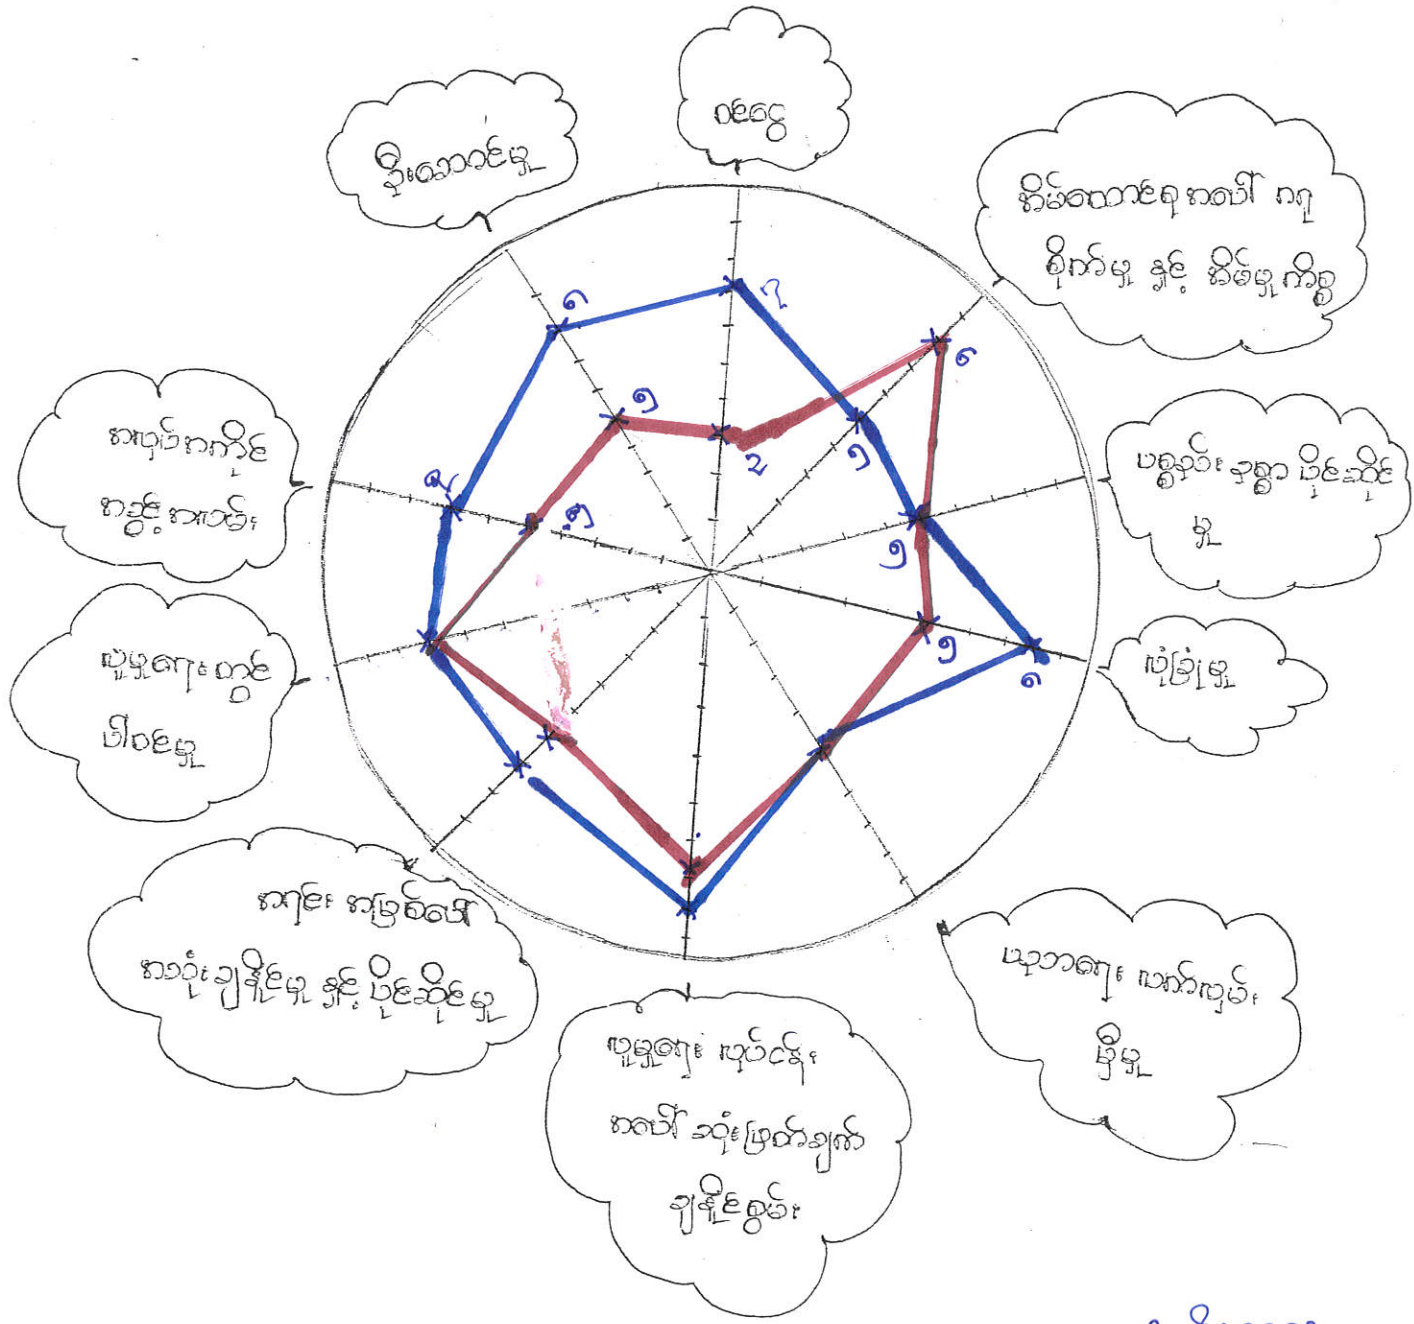 ဝင်ငွေ
ဦးဆောင်မှု
အိမ်ထောင်စု အပေါ် ဂရု
စိုက်မှု နှင့် အိမ်မှုကိစ္စ
ပစ္စည်း ဥစ္စာ ပိုင်ဆိုင်
မှု
လုံခြုံမှု
ယုဘရေး လက်လှမ်း
မှီမှု
လူမှုရေး လုပ်ငန်း
အပေါ် ဆုံးဖြတ်ချက်
ချနိုင်စွမ်း
အရင်း အမြစ်ပေါ်
အသုံးချနိုင်မှု နှင့် ပိုင်ဆိုင်မှု
လူမှုရေး တွင်
ပါဝင်မှု
အလုပ်အကိုင်
အခွင့်အလမ်း
၇
၅
၅
၅
၅